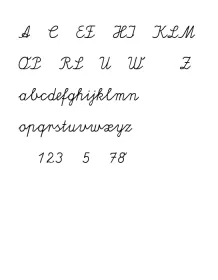 A C EF HI KLM
OP RL U W Z
abcdefghijklmn
opqrstuvwxyz
123 5 78